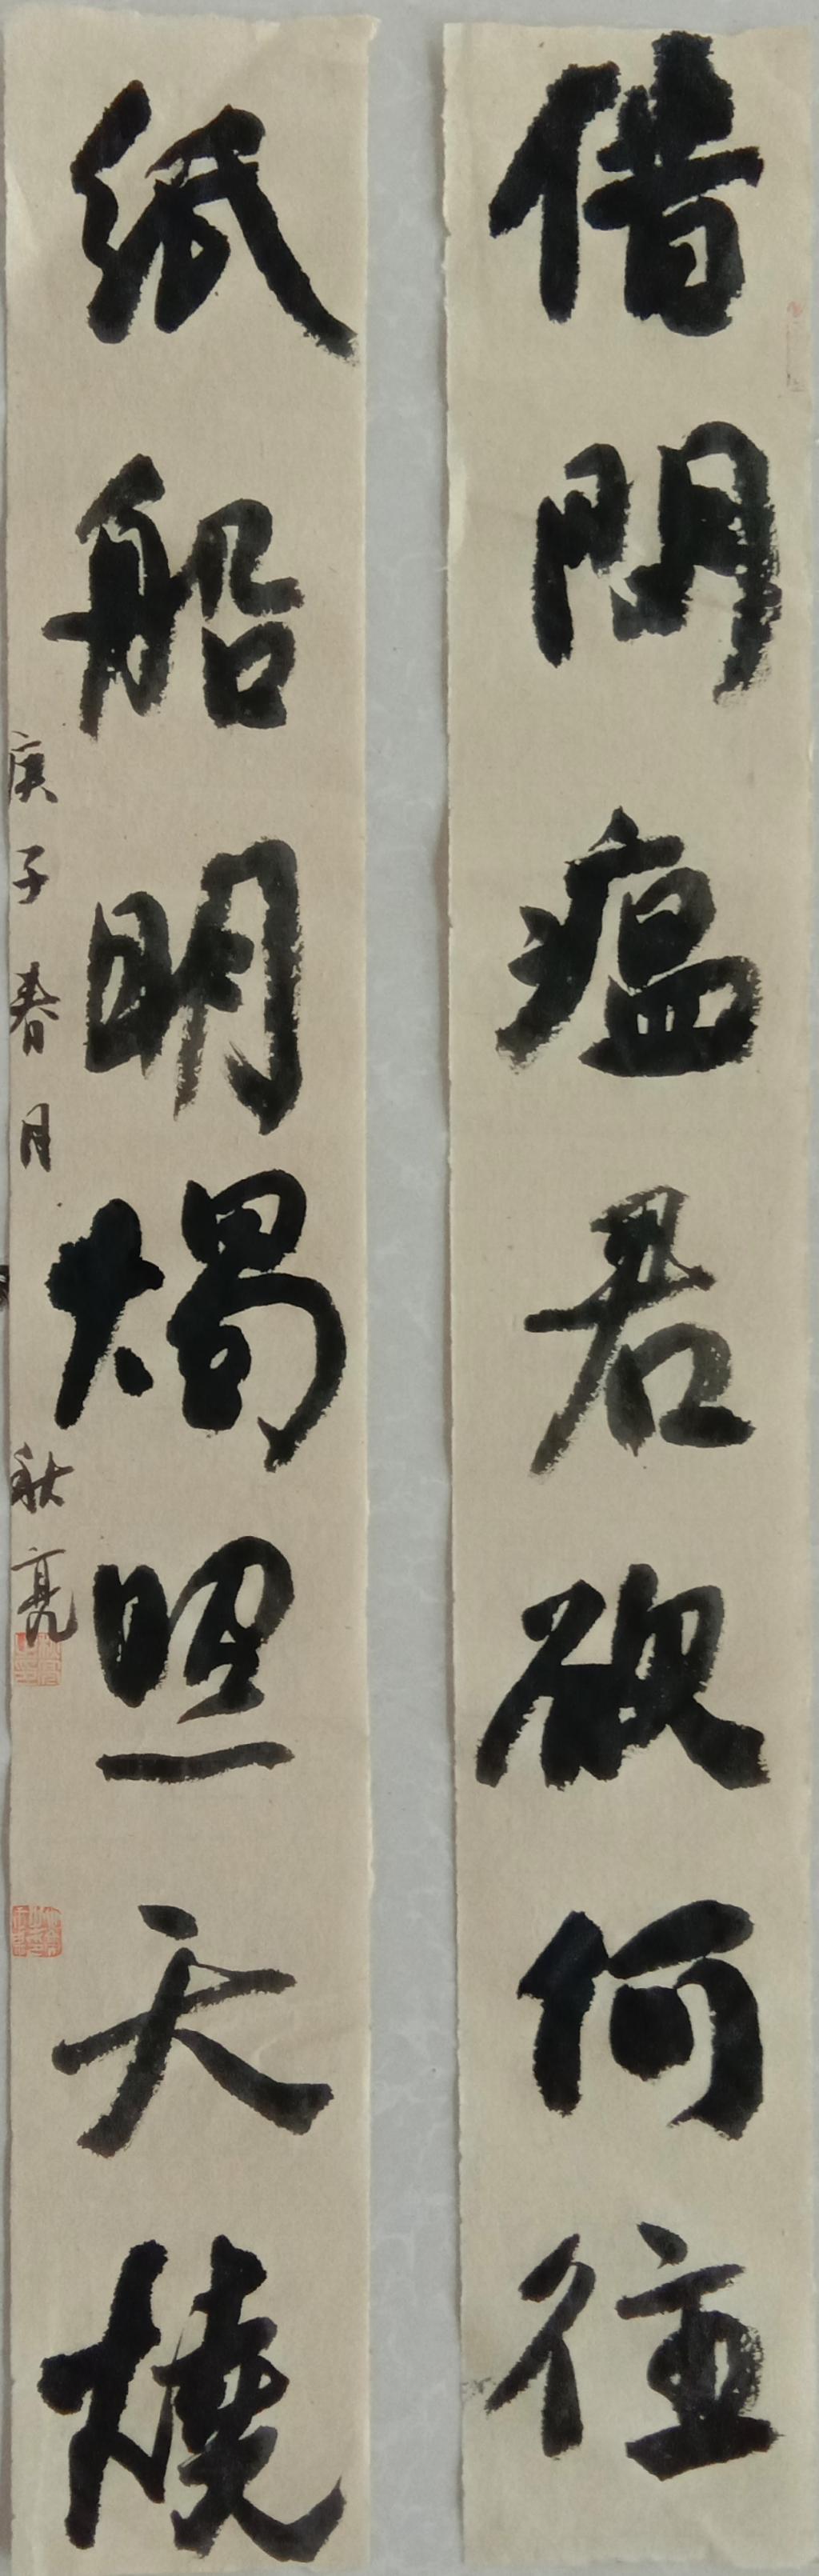 借問瘟君欲何往
紙船明燭照天燒
庚子春月 秋亮